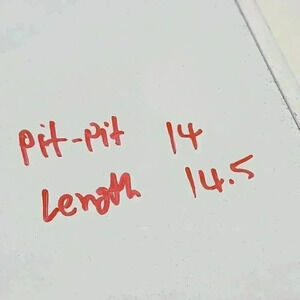 Pit-Pit 14
Length 14.5